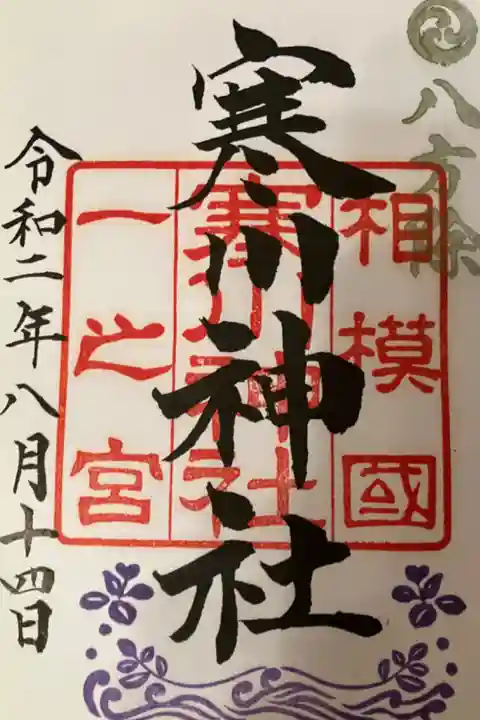 八方除
寒川神社
相模國
寒川神社
一之宮
令和二年八月十四日